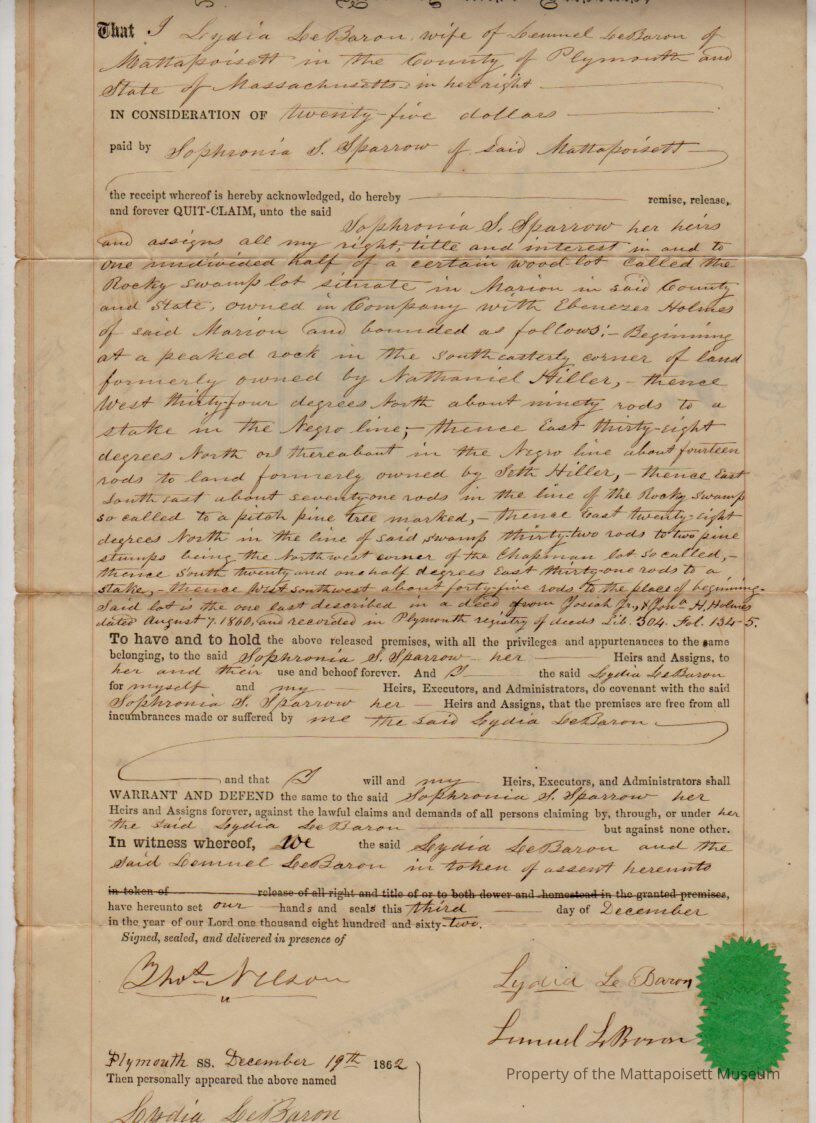 That I Lydia LeBaron, wife of Lemuel LeBaron of
Mattapoisett in the County of Plymouth and
State of Massachusetts in her right
IN CONSIDERATION OF twenty-five dollars
paid by Sophronia S. Sparrow of said Mattapoisett
the receipt whereof is hereby acknowledged, do hereby remise, release,
and forever QUIT-CLAIM, unto the said
Sophronia S. Sparrow her heirs
and assigns all my right, title and interest in and to
one undivided half of a certain wood-lot called the
Rocky swamp lot situate in Marion in said County
and State, owned in Company with Ebenezer Holmes
of said Marion and bounded as follows:- Beginning
at a peaked rock in the southeasterly corner of land
formerly owned by Nathaniel Hiller,- thence
West thirty-four degrees North about ninety rods to a
stake in the Negro line;- thence East thirty-eight
degrees North or thereabout in the Negro line about fourteen
rods to land formerly owned by Seth Hiller,- thence East
South east about seventy one rods in the line of the Rocky swamp
so called to a pitch pine tree marked,- thence East twenty-eight
degrees North in the line of said swamp thirty-two rods to two pine
stumps being the Northwest corner of the Chapman lot so called,-
thence South twenty and one half degrees East thirty-one rods to a
stake,- thence West southwest about forty-five rods to the place of beginning.
Said lot is the one last described in a deed from Josiah Jr., & Jona. H. Holmes
dated August 7. 1860, and recorded in Plymouth registry of deeds Lib. 304. Fol. 134-5.
To have and to hold the above released premises, with all the privileges and appurtenances to the same
belonging, to the said Sophronia S. Sparrow her Heirs and Assigns, to
her and their use and behoof forever. And I the said Lydia LeBaron
for myself and my Heirs, Executors, and Administrators, do covenant with the said
Sophronia S. Sparrow her Heirs and Assigns, that the premises are free from all
incumbrances made or suffered by me the said Lydia LeBaron
and that I will and my Heirs, Executors, and Administrators shall
WARRANT AND DEFEND the same to the said Sophronia S. Sparrow her
Heirs and Assigns forever, against the lawful claims and demands of all persons claiming by, through, or under her
the said Lydia LeBaron but against none other.
In witness whereof, We the said Lydia LeBaron and the
said Lemuel LeBaron in token of assent hereunto
in token of release of all right and title of or to both dower and homestead in the granted premises,
have hereunto set our hands and seals this third day of December
in the year of our Lord one thousand eight hundred and sixty-two.
Signed, sealed, and delivered in presence of
Thos. Nelson
Lydia Le Baron
Lemuel LeBaron
Plymouth SS. December 19th 1862
Then personally appeared the above named
Lydia LeBaron
Property of the Mattapoisett Museum